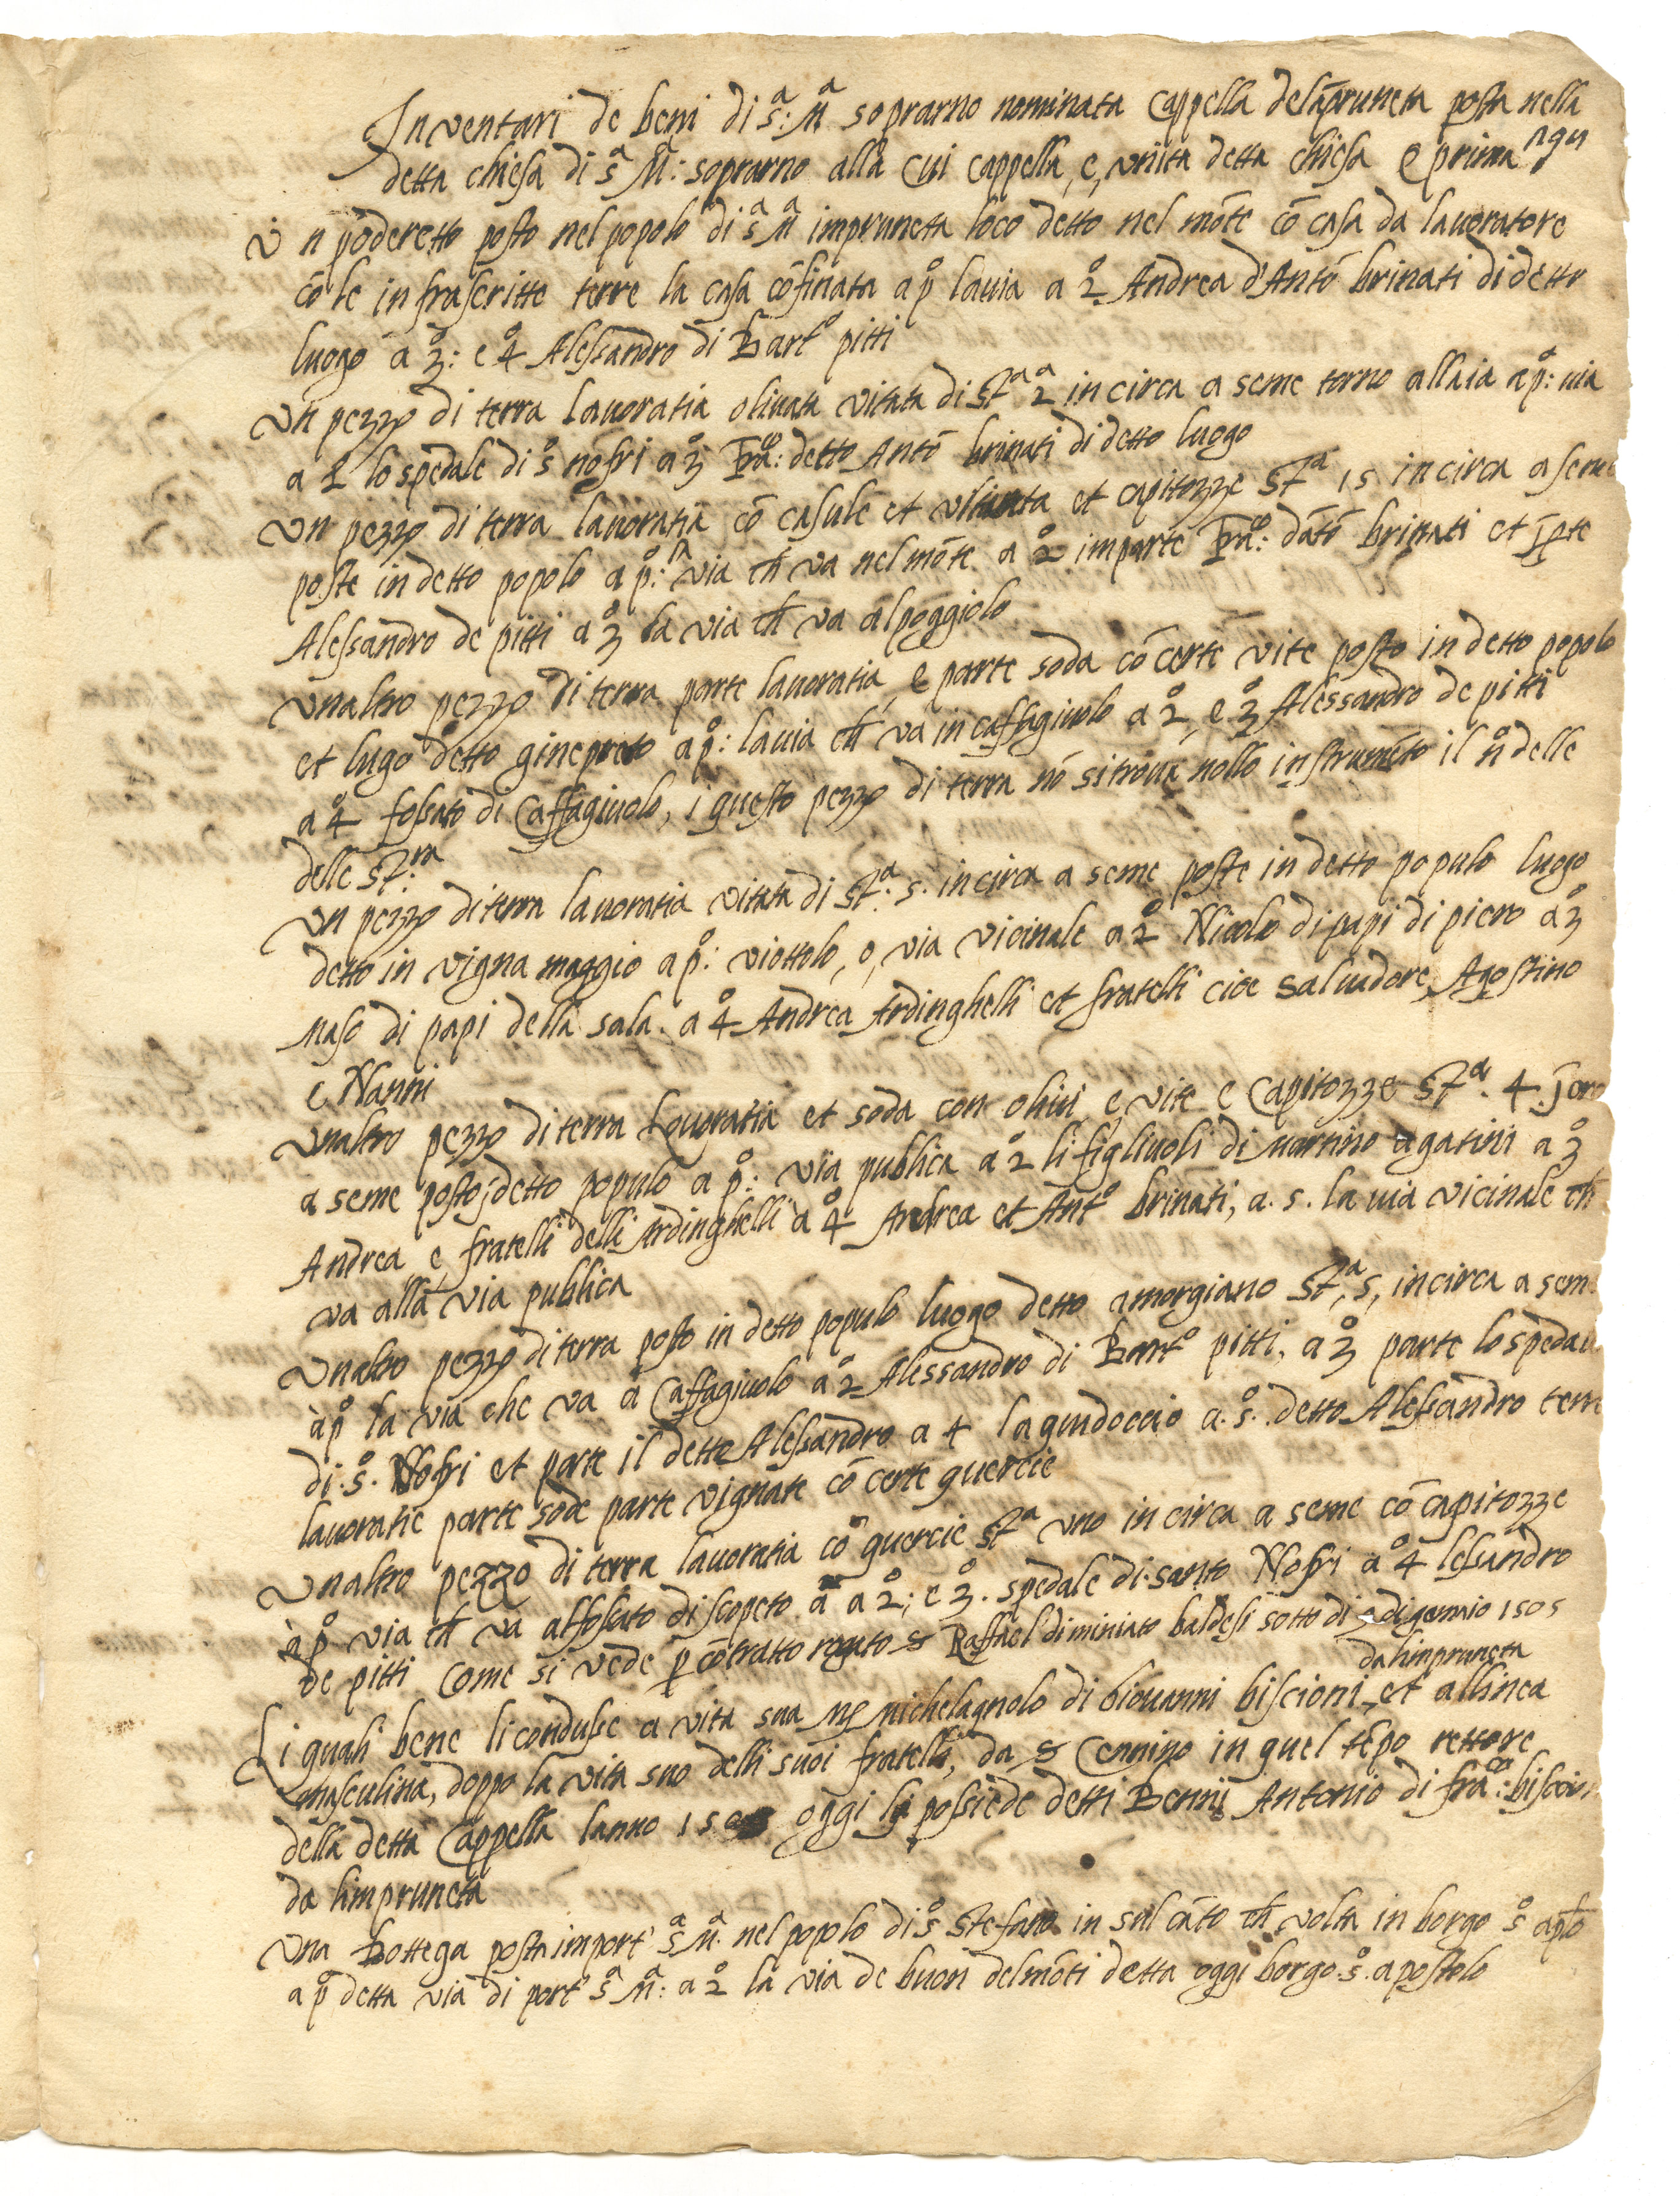 Inventari de beni di sª: Mª soprarno nominata Cappella delāpruneta posta nella
detta chiesa di sª Mª: soprarno alla cui cappella, e, unita detta chiesa e prima
Un poderetto posto nel popolo di sª Mª impruneta loco detto nel mōte cō casa da lavoratore
cō le infrascritte terre la casa cōfinata a pº la via a 2º Andrea d'Antō brinati di detto
luogo a 3º: e 4º Alessandro di Bartº pitti
Un pezzo di terra lavoratia olivata vitata di Stª 2 in circa a seme torno allaia a pº: via
a 2 lo spedale di sº nofri a 3º Frāº: detto Antō brinati di detto luogo
Un pezzo di terra lavoratia cō casule et ulivata et capitozze Stª 15 in circa a seme
poste in detto popolo a pº: la via ch va nel mōte a 2º imparte Frāº: dātō brinati et īpte
Alessandro de pitti a 3º la via ch va al poggiolo
Unaltro pezzo di terra parte lavoratia, e parte soda cō certe vite posto in detto popolo
et lugo detto ginepreto a pº: la via ch va in caffagiuolo a 2º, e 3º Alessandro de pitti
a 4º fossato di Caffagiuolo, i questo pezzo di terra nō si trova nello instrumēto il nº delle
delle St:ra
Un pezzo di terra lavoratia vitata di Stª: 5. in circa a seme poste in detto populo luogo
detto in vigna maggio a pº: viottolo, o, via vicinale a 2º Nicolo di papi di piero a 3º
Maso di papi della sala. a 4º Andrea Ardinghelli et fratelli cioe Salvadore, Agostino
e Nanni
Unaltro pezzo di terra Lavoratia et soda con olivi, e vite e Capitozze Stª. 4.
a seme posto ī detto populo a pº: via publica a 2º li figliuoli di martino agatini a 3º
Andrea e fratelli delli Ardinghelli a 4º Andrea et Antº brinati, a. 5. la via vicinale ch
va alla via publica
Unaltro pezzo di terra posto in detto populo luogo detto amorgiano Stª, 5, in circa a seme
à pº la via che va a Caffagiuolo a 2º Alessandro di Bartº pitti, a 3º parte lo spedale
di. sº. Nofri et parte il detto Alessandro a 4 la guidoccio a. 5º. detto Alessandro terre
lavoratie parte sode parte vignate cō certe quercie
Unaltro pezzo di terra lavoratia cō quercie Stª uno in circa a seme cō capitozze
à pº via ch va alfossato di scopeto a a 2º; e 3º. spedale di santo Nofri a 4º lesandro
de pitti Come si vede p cōtratto rogato s Raffael di miniato baldesi sotto di 3 di gennaio 1505
dalimpruneta
Li quali bene li condusse a vita sua M michelagnolo di Giovanni biscioni, et allinea
masculina, doppo la vita suo delli suoi fratelli, da s Cennino in quel tēpo rettore
della detta Cappella lanno oggi li possiede detti Benni Antonio di frāco: biscioni
da limpruneta
Una bottega posta import' sª Mª. nel popolo di sº Stefano in sul cāto ch volta in borgo sº apto
a pº detta via di port' sª Mª: a 2º la via de buon delmōti detta oggi borgo. sº. apostolo